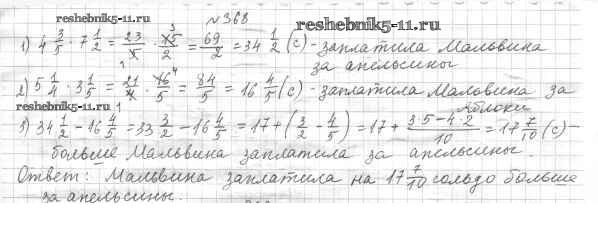 reshebnik5-11.ru
№368
reshebnik5-11.ru
1) 4 3/5 · 7 1/2 = 23/5 · 15/2 = 69/2 = 34 1/2 (с) - заплатила Мальвина
за апельсины
2) 5 1/4 · 3 1/5 = 21/4 · 16/5 = 84/5 = 16 4/5 (с) - заплатила Мальвина за
яблоки
reshebnik5-11.ru
3) 34 1/2 - 16 4/5 = 33 3/2 - 16 4/5 = 17 + (3/2 - 4/5) = 17 + (3·5-4·2)/10 = 17 7/10 (с) -
больше Мальвина заплатила за апельсины.
Ответ: Мальвина заплатила на 17 7/10 сольдо больше
за апельсины.